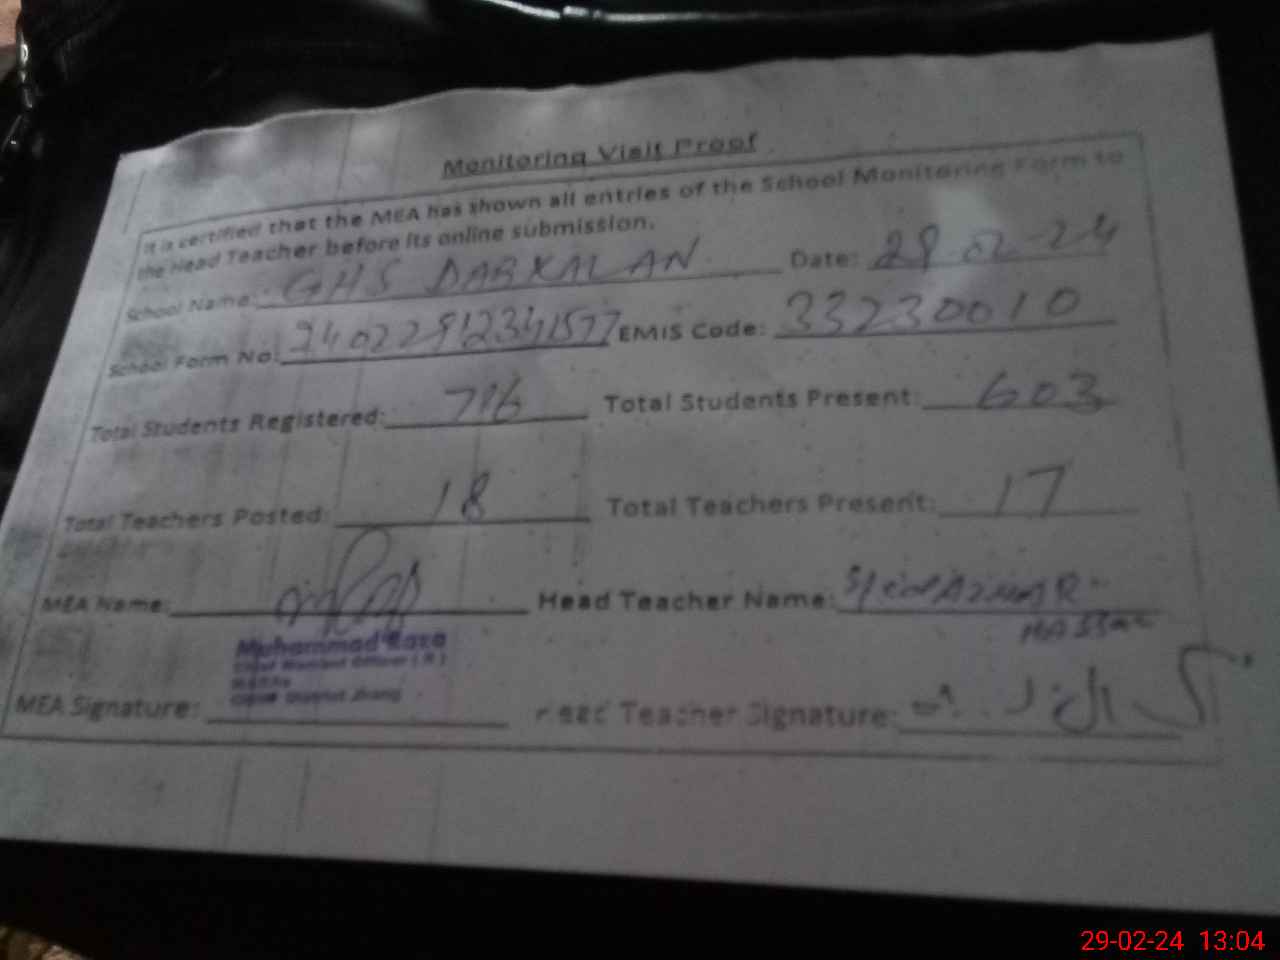 Monitoring Visit Proof
It is certified that the MEA has shown all entries of the School Monitoring Form to
the Head Teacher before its online submission.
School Name: GHS DABKALAN Date: 29-02-24
School Form No: 24022912341577 EMIS Code: 33230010
Total Students Registered: 716 Total Students Present: 603
Total Teachers Posted: 18 Total Teachers Present: 17
MEA Name: Head Teacher Name:
Muhammad Raza
Chief Warrant Officer (R)
District Jhang
MEA Signature: Head Teacher Signature:
29-02-24 13:04